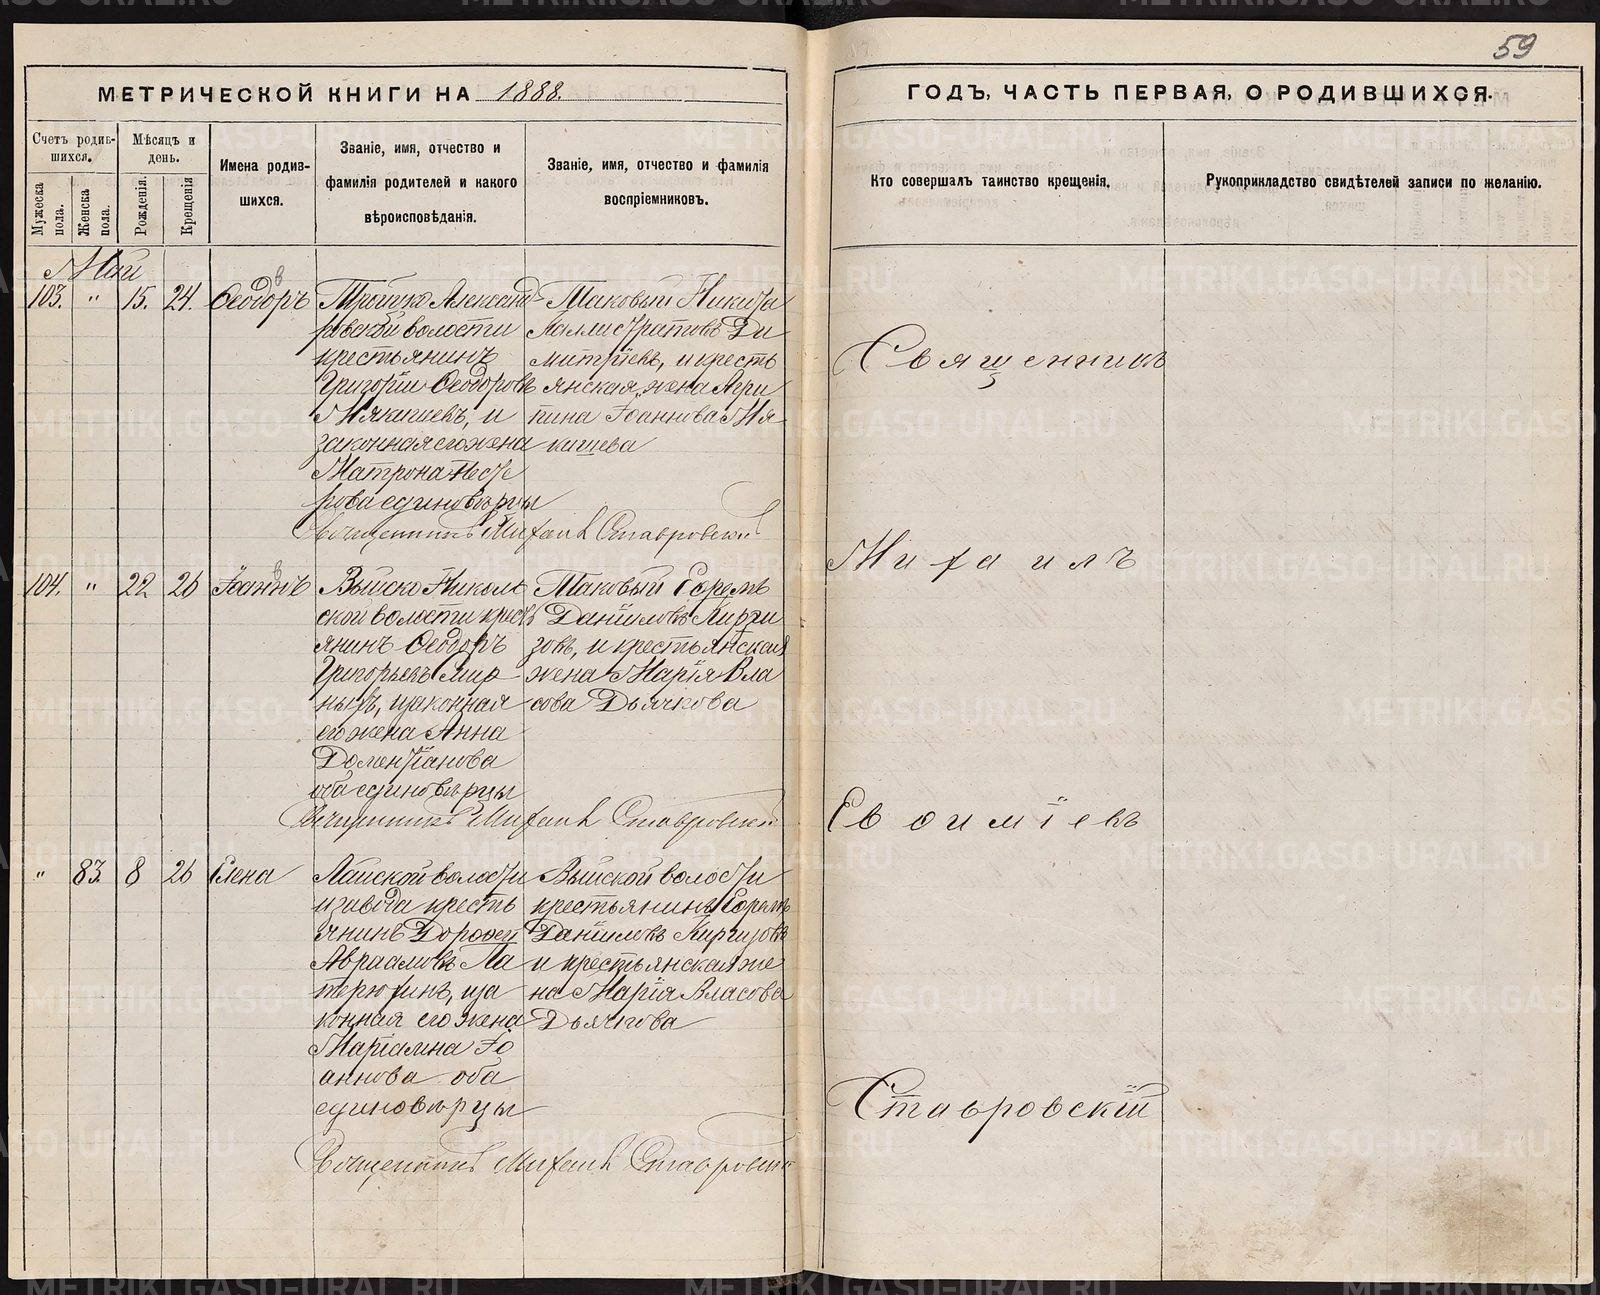 59
МЕТРИЧЕСКОЙ КНИГИ НА 1888.
ГОДЪ, ЧАСТЬ ПЕРВАЯ, О РОДИВШИХСЯ.
Счетъ родив-
шихся.
Мужеска пола.
Женска пола.
Мѣсяцъ и
день.
Рожденія.
Крещенія
Имена родив-
шихся.
Званіе, имя, отчество и
фамилія родителей и какого
вѣроисповѣданія.
Званіе, имя, отчество и фамилія
воспріемниковъ.
Кто совершалъ таинство крещенія.
Рукоприкладство свидѣтелей записи по желанію.
Май
103. " 15. 24. Ѳеодоръ
Троицко Александ-
ровской волости
крестьянинъ
Григорій Ѳеодоровъ
Мякишевъ, и
законная его жена
Матрона Несте
рова единовѣрцы
Таковый Никита
Каллистратовъ Ди
митріевъ, и кресть
янская жена Агри
пина Іоаннова Мя
кишева
Священникъ Михаилъ Ставровскій
104. " 22 26 Іоаннъ
Выйско Николь
ской волости крест
янинъ Ѳеодоръ
Григорьевъ Смир
ныхъ, и законная
его жена Анна
Доментіанова
оба единовѣрцы
Таковый Ефремъ
Даніиловъ Кирги
зовъ, и крестьянская
жена Марія Вла
сова Дьячкова
Священникъ Михаилъ Ставровскій
" 83. 8 26 Елена
Лайской волости
и завода кресть
янинъ Дорофей
Авраамовъ Ма
терюхинъ, и за
конная его жена
Маріамна Іо
аннова оба
единовѣрцы
Выйской волости
крестьянинъ Ефремъ
Даніиловъ Киргизовъ
и крестьянская же
на Марія Власова
Дьячкова
Священникъ Михаилъ Ставровскій
Священникъ
Михаилъ
Евѳиміевъ
Ставровскій
METRIKI.GASO-URAL.RU